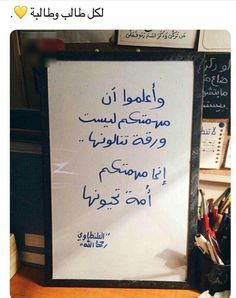 لكل طالب وطالبة💛.
وأعلموا أن
مهمتكم ليست
ورقة تنالونها..
إنما مهمتكم
أمة تحيونها
الطنطاوي
رحمه الله